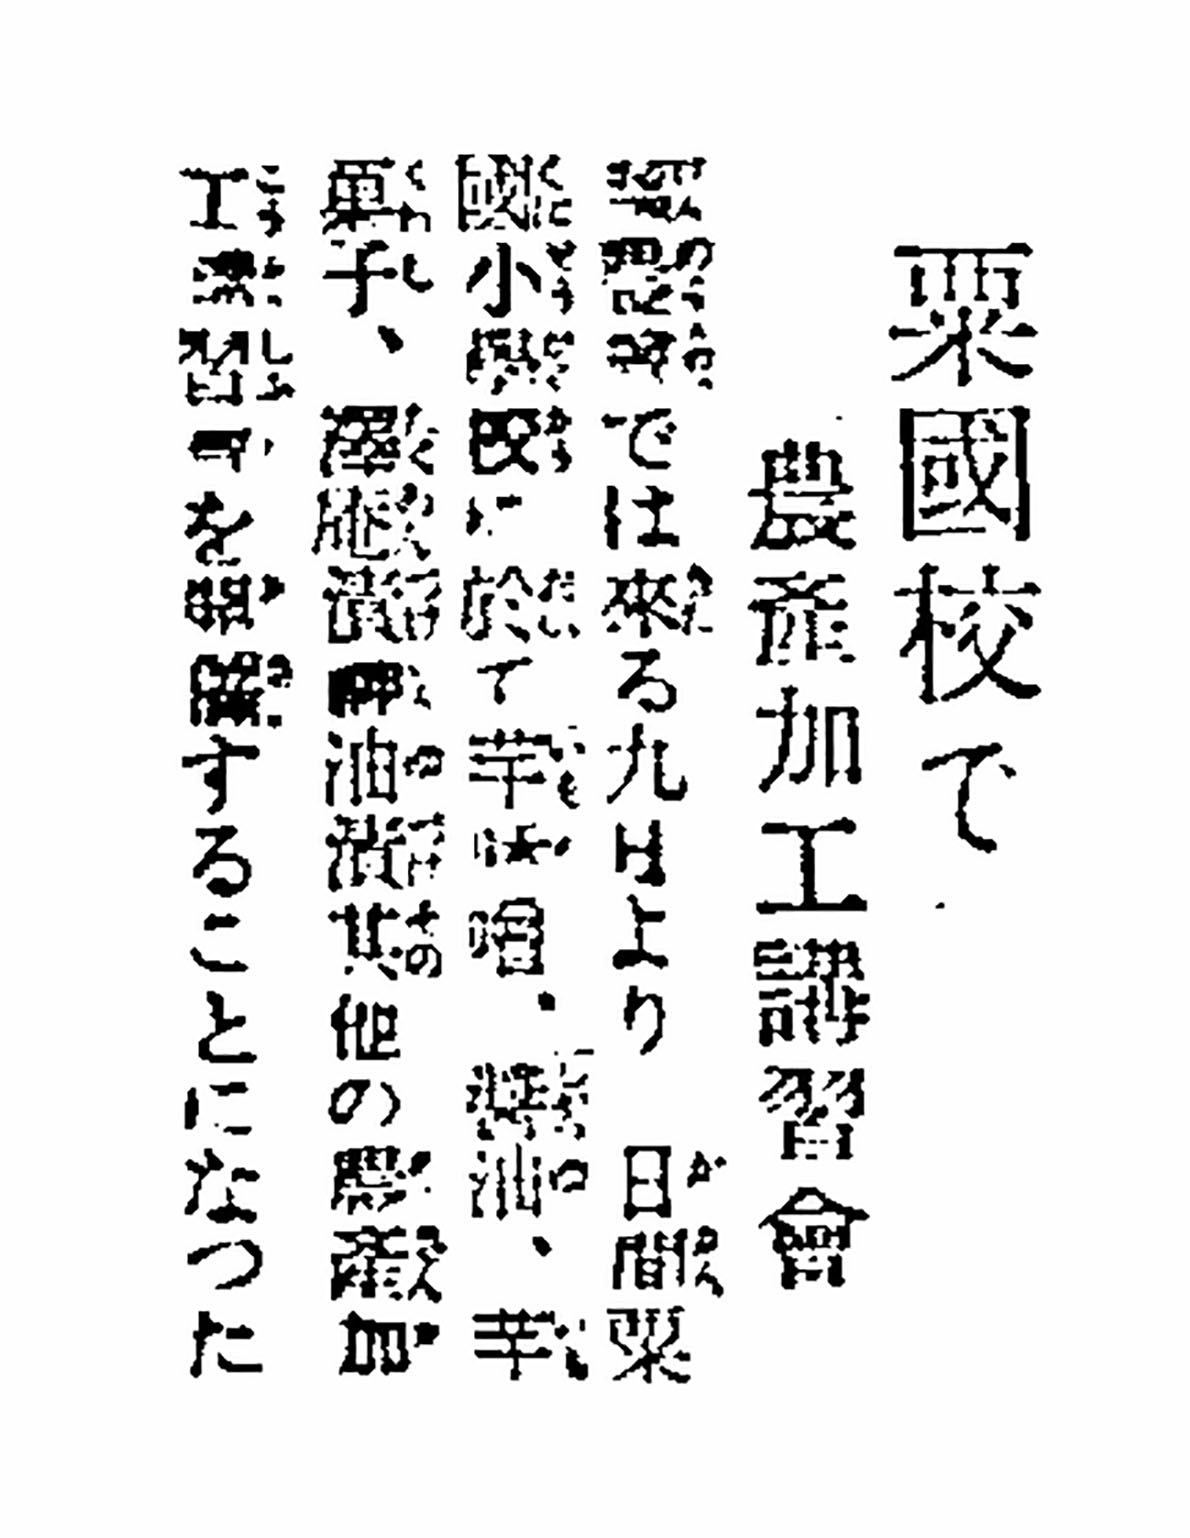 粟國校で
農產加工講習會
では來る九日より 日間粟
國小學校に於て芋味噌、醬油、芋
菓子、澤庵漬 油漬其他の農產加
工 習 を開 することになつた